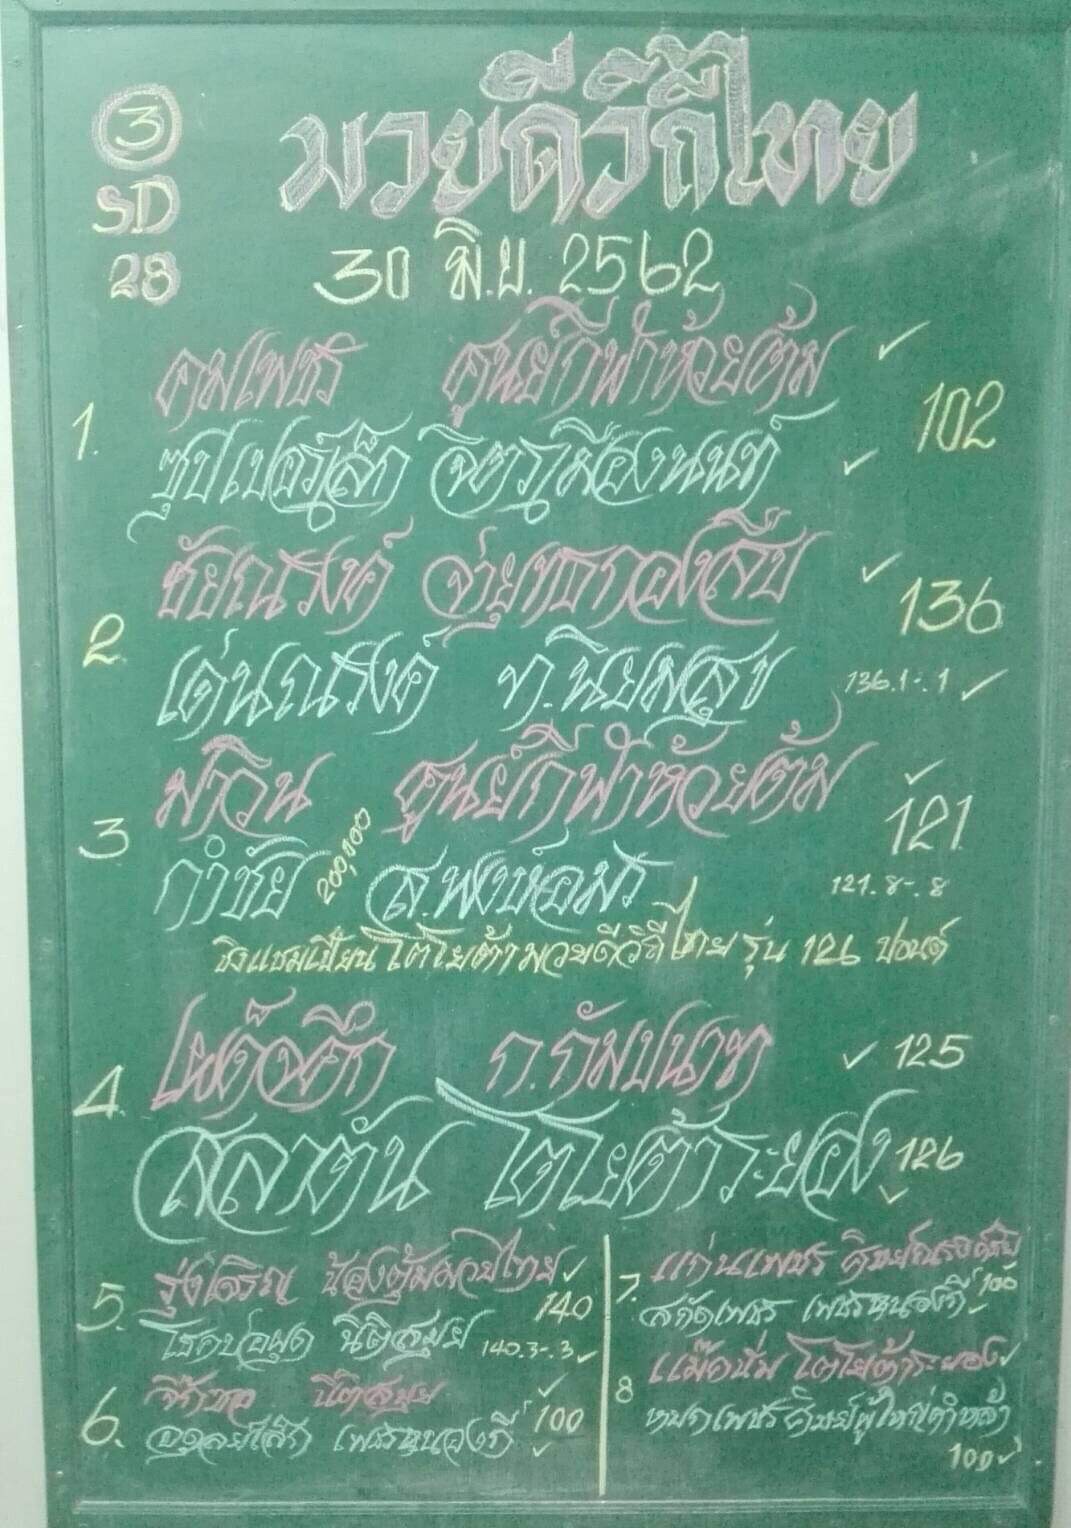 3
SD
28
มวยดีวิถีไทย
30 มิ.ย. 2562
1.
คมเพชร ศูนย์กีฬาห้วยต้ม
102
ซุปเปอร์เล็ก จิตรเมืองนนท์
2.
ชัยณรงค์
136
เด่นณรงค์ ท.นิยมสุข
136.1-.1
3
มาวิน ศูนย์กีฬาห้วยต้ม
121
กำชัย 200,100
121.8-.8
ชิงแชมเปี้ยนโตโยต้ามวยดีวิถีไทย รุ่น 126 ปอนด์
4.
เพต็จศึก ก.กัมปนาท
125
สลาตัน โตโยต้าระยอง
126
5.
รุ่งเจริญ น้องตุ้มมวยไทย
140
นิติสมัย
140.3-.3
6.
นิติสมัย
100
เพชรหนองกี่
7.
แก่นเพชร
สกัดเพชร เพชรหนองกี่ 100
8
โตโยต้าระยอง
หยกเพชร ศิษย์ผู้ใหญ่
100